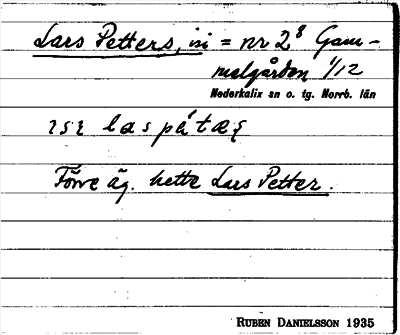 Lars Petters, isi = nr 2⁸ Gam-
melgården 1/12
Nederkalix sn o. tg. Norrb. län
Förre äg. hette Lars Petter.
RUBEN DANIELSSON 1935